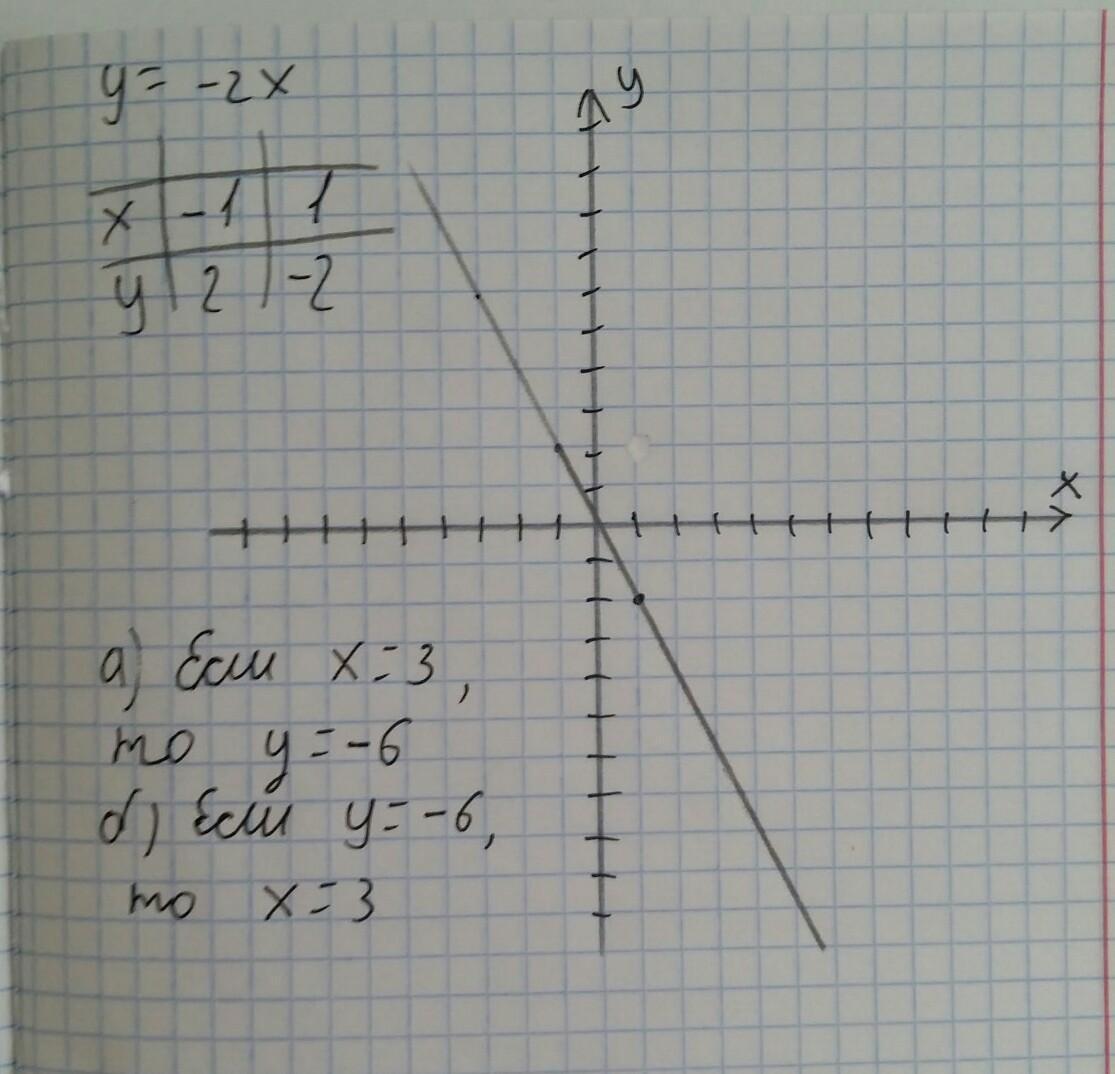 y = -2x
x -1 1
y 2 -2
y
x
а) Если x = 3,
то y = -6
б) Если y = -6,
то x = 3